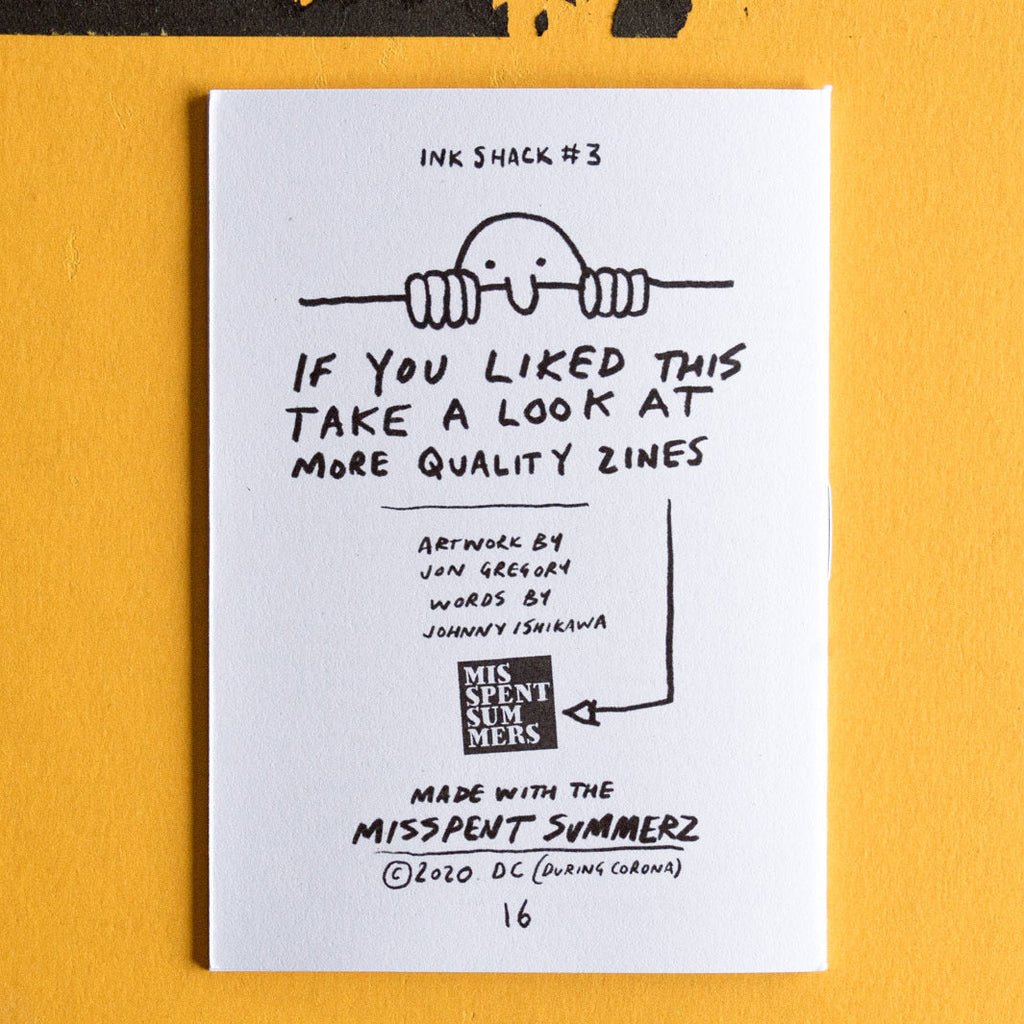 INK SHACK #3
IF YOU LIKED THIS
TAKE A LOOK AT
MORE QUALITY ZINES
ARTWORK BY
JON GREGORY
WORDS BY
JOHNNY ISHIKAWA
MIS
SPENT
SUM
MERS
MADE WITH THE
MISSPENT SUMMERZ
©2020. DC (DURING CORONA)
16